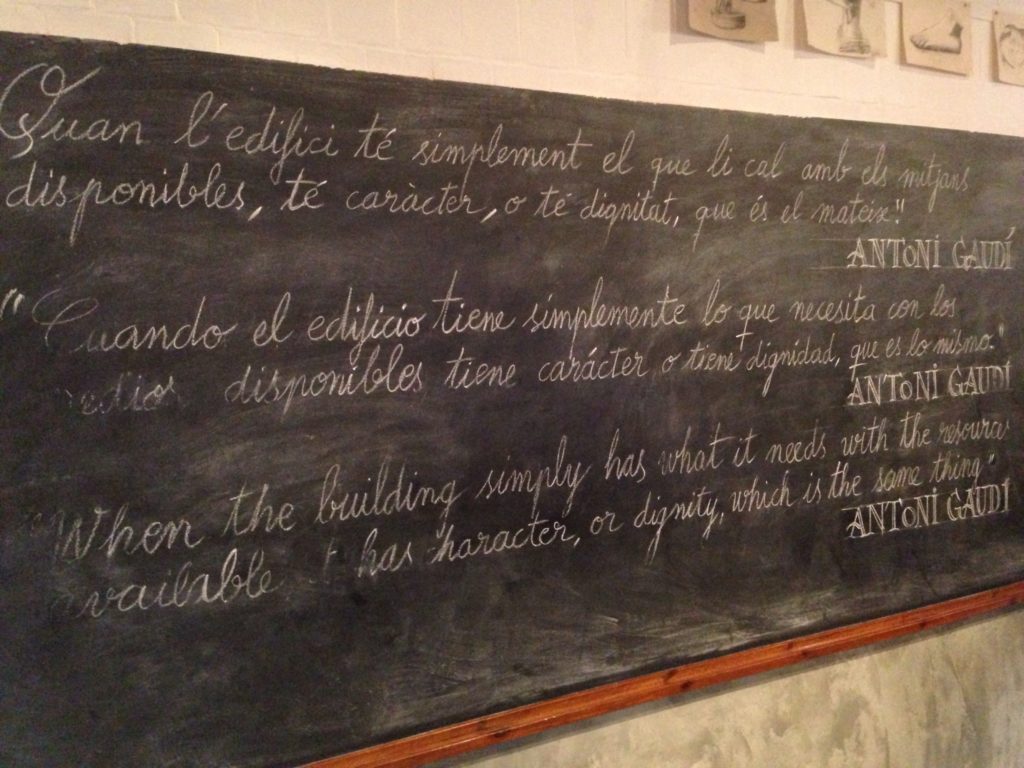 Quan l'edifici té simplement el que li cal amb els mitjans
disponibles, té caràcter, o té dignitat, que és el mateix."
ANTONI GAUDÍ
"Cuando el edificio tiene simplemente lo que necesita con los
edios disponibles tiene carácter o tiene dignidad, que es lo mismo."
ANTONI GAUDÍ
"When the building simply has what it needs with the resourc
available t has haracter, or dignity, which is the same thing"
ANTONI GAUDÍ